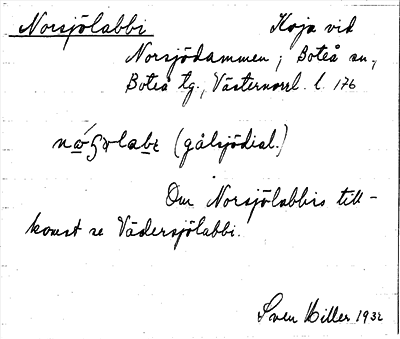 Norsjölabbi Koja vid
Norsjödammen, Boteå sn,
Boteå tg., Västernorrl. l. 176
(gålsjödial.)
Om Norsjölabbis till-
komst se Vädersjölabbi.
Sven Hiller 1932